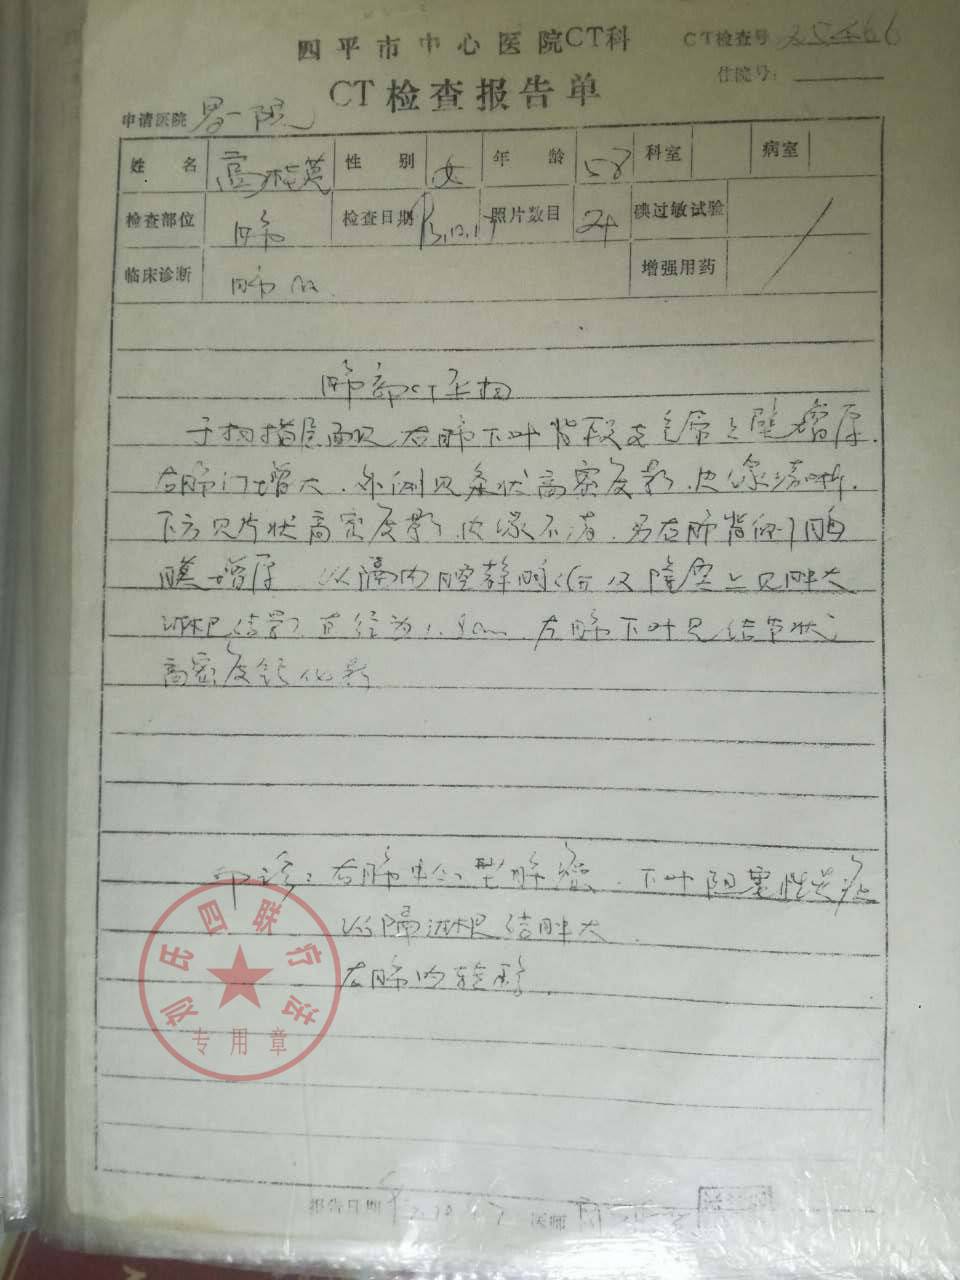 四平市中心医院CT科
CT检查号
CT检查报告单
住院号:
申请医院
姓名 高 英 性别 女 年龄 58 科室 病室
检查部位 肺 检查日期 照片数目 24 碘过敏试验
临床诊断 肺 增强用药
肺部CT平扫
于扫描层面见右肺下叶背段支气管之壁增厚.
右肺门增大.外侧见条状高密度影.边缘清晰.
下方见片状高密度影.边缘不清.另右肺背侧胸
膜增厚 纵隔内腔静脉 及隆突上见肿大
淋巴结影 直径为 cm 左肺下叶见结节状
高密度钙化影
印诊: 右肺中心型肺癌.下叶阻塞性炎症
纵隔淋巴结肿大.
左肺内转移.
刘氏四联疗法
专用章
报告日期 医师